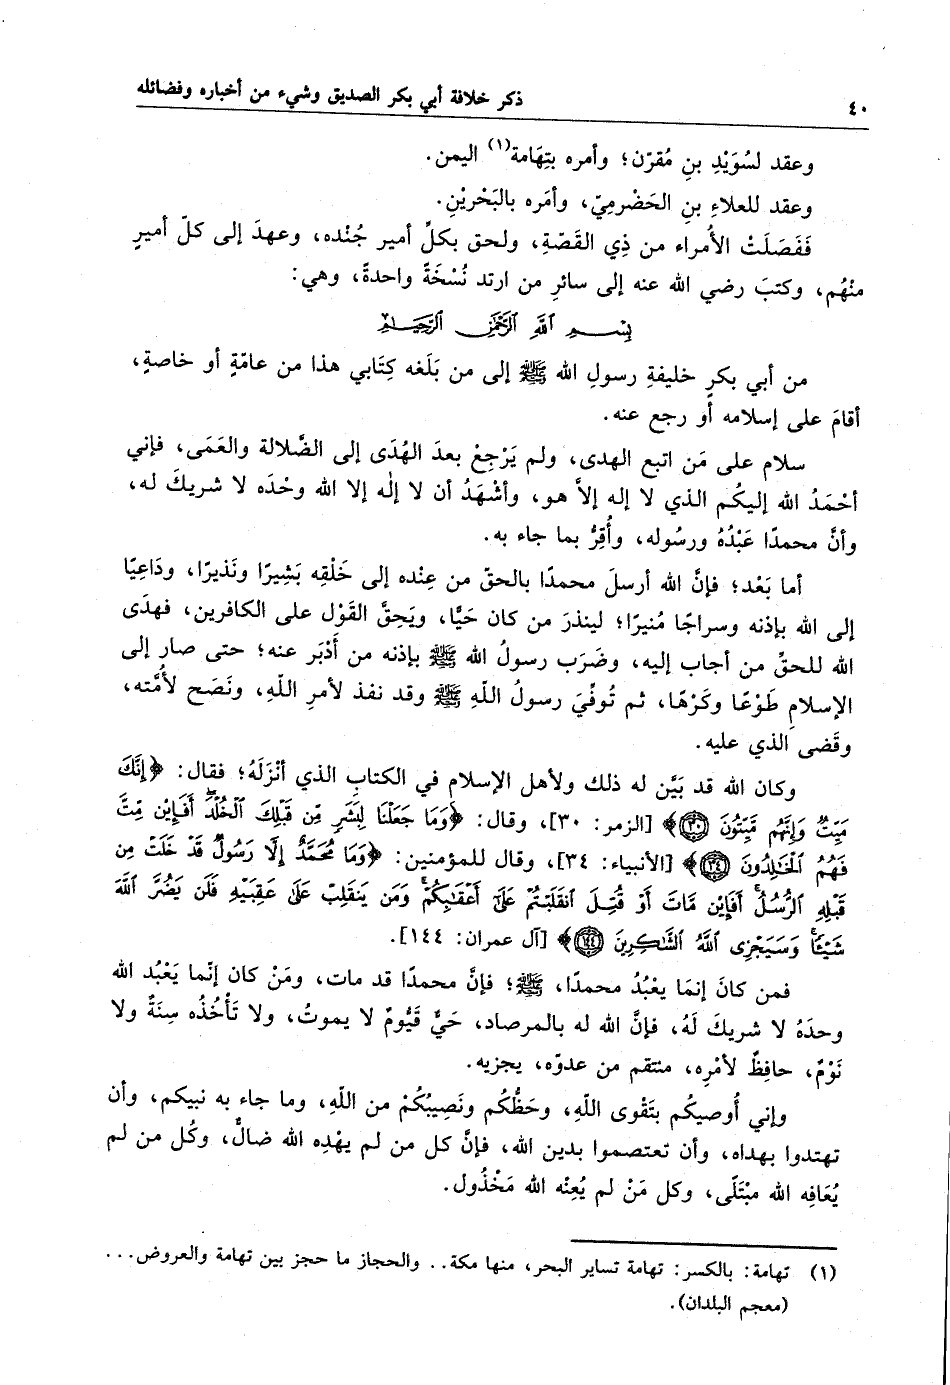 ٤٠ ذكر خلافة أبي بكر الصديق وشيء من أخباره وفضائله
وعقد لسُوَيْدِ بنِ مُقرّن؛ وأمره بتِهَامة(١) اليمن.
وعقد للعلاءِ بنِ الحَضْرميّ، وأمَره بالبَحْريْنِ.
فَفَصَلَتْ الأُمراء من ذِي القَصّةِ، ولحق بكلِّ أمير جُنْده، وعهدَ إلى كلّ أميرٍ
منْهُم، وكتبَ رضي الله عنه إلى سائرِ من ارتد نُسْخَةً واحدةً، وهي:
بِسْمِ اللَّهِ الرَّحْمَٰنِ الرَّحِيمِ
من أبي بكرٍ خليفةِ رسولِ الله ﷺ إلى من بَلَغه كِتَابي هذا من عامّةٍ أو خاصةٍ،
أقامَ على إسلامه أو رجع عنه.
سلام على مَن اتبع الهدى، ولم يَرْجِعْ بعدَ الهُدَى إلى الضَّلالة والعَمَى، فإني
أحْمَدُ الله إليكُم الذي لا إله إلاَّ هو، وأشْهَدُ أن لا إلٰه إلا الله وحْدَه لا شريكَ له،
وأنَّ محمدًا عَبْدُهُ ورسُوله، وأُقِرُّ بما جاء به.
أما بَعْد؛ فإنَّ الله أرسلَ محمدًا بالحقّ من عِنْده إلى خَلْقِه بَشِيرًا ونَذيرًا، ودَاعِيًا
إلى الله بإذنه وسراجًا مُنيرًا؛ لينذرَ من كان حَيًّا، ويَحِقَّ القَوْل على الكافرين، فهدَى
الله للحقّ من أجاب إليه، وضَرَب رسولُ الله ﷺ بإذنه من أدْبَر عنه؛ حتى صار إلى
الإسلامِ طَوْعًا وكَرْهًا، ثم تُوفِّيَ رسولُ اللّهِ ﷺ وقد نفذ لأمرِ اللّهِ، ونَصَح لأُمَّته،
وقَضى الذي عليه.
وكان الله قد بيَّن له ذلك ولأهل الإسلام في الكتابِ الذي أنْزَلَهُ؛ فقال: ﴿إِنَّكَ
مَيِّتٌ وَإِنَّهُم مَّيِّتُونَ ٣٠﴾ [الزمر: ٣٠]، وقال: ﴿وَمَا جَعَلْنَا لِبَشَرٍ مِّن قَبْلِكَ الْخُلْدَ ۖ أَفَإِيْن مِّتَّ
فَهُمُ الْخَالِدُونَ ٣٤﴾ [الأنبياء: ٣٤]، وقال للمؤمنين: ﴿وَمَا مُحَمَّدٌ إِلَّا رَسُولٌ قَدْ خَلَتْ مِن
قَبْلِهِ الرُّسُلُ ۚ أَفَإِيْن مَّاتَ أَوْ قُتِلَ انقَلَبْتُمْ عَلَىٰ أَعْقَابِكُمْ ۚ وَمَن يَنقَلِبْ عَلَىٰ عَقِبَيْهِ فَلَن يَضُرَّ اللَّهَ
شَيْئًا ۗ وَسَيَجْزِى اللَّهُ الشَّاكِرِينَ ١٤٤﴾ [آل عمران: ١٤٤].
فمن كانَ إنمَا يعْبُدُ محمدًا، ﷺ؛ فإنَّ محمدًا قد مات، ومَنْ كان إنّما يَعْبُد الله
وحدَهُ لا شريكَ لَهُ، فإنَّ الله له بالمرصاد، حَيٌّ قَيُّومٌ لا يموتُ، ولا تَأْخُذُه سِنَةٌ ولا
نَوْمٌ، حافِظٌ لأمْرِه، منتقم من عدوّه، يجزيه.
وإني أُوصيكُم بتَقْوى اللّهِ، وحَظُّكُم ونَصِيبُكُمْ من اللّهِ، وما جاء به نبيكم، وأن
تهتدوا بهداه، وأن تعتصموا بدين الله، فإنَّ كل من لم يهْدِه الله ضالٌّ، وكُل من لم
يُعَافِه الله مبْتَلًى، وكل مَنْ لم يُعِنْه الله مَخْذُول.
(١) تهامة: بالكسر: تهامة تساير البحر، منها مكة.. والحجاز ما حجز بين تهامة والعروض...
(معجم البلدان).